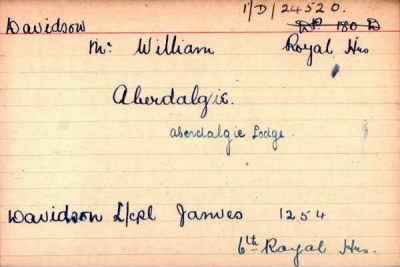 1/D/24520.
Davidson W.P. 180 D
Mr William Royal Hrs
Aberdalgie.
Aberdalgie Lodge.
Davidson L/cpl James 1254
6th Royal Hrs.